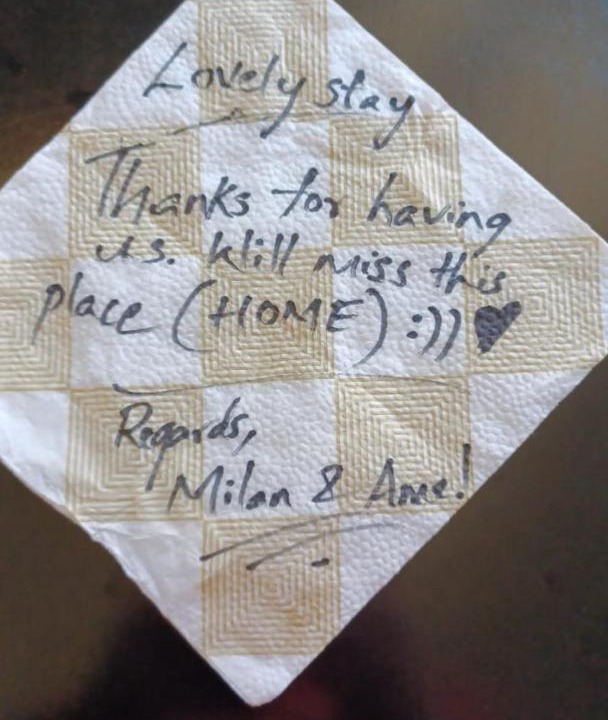 Lovely stay
Thanks for having
us. Will miss this
place (HOME) :)) ♥
Regards,
Milan & Ame!